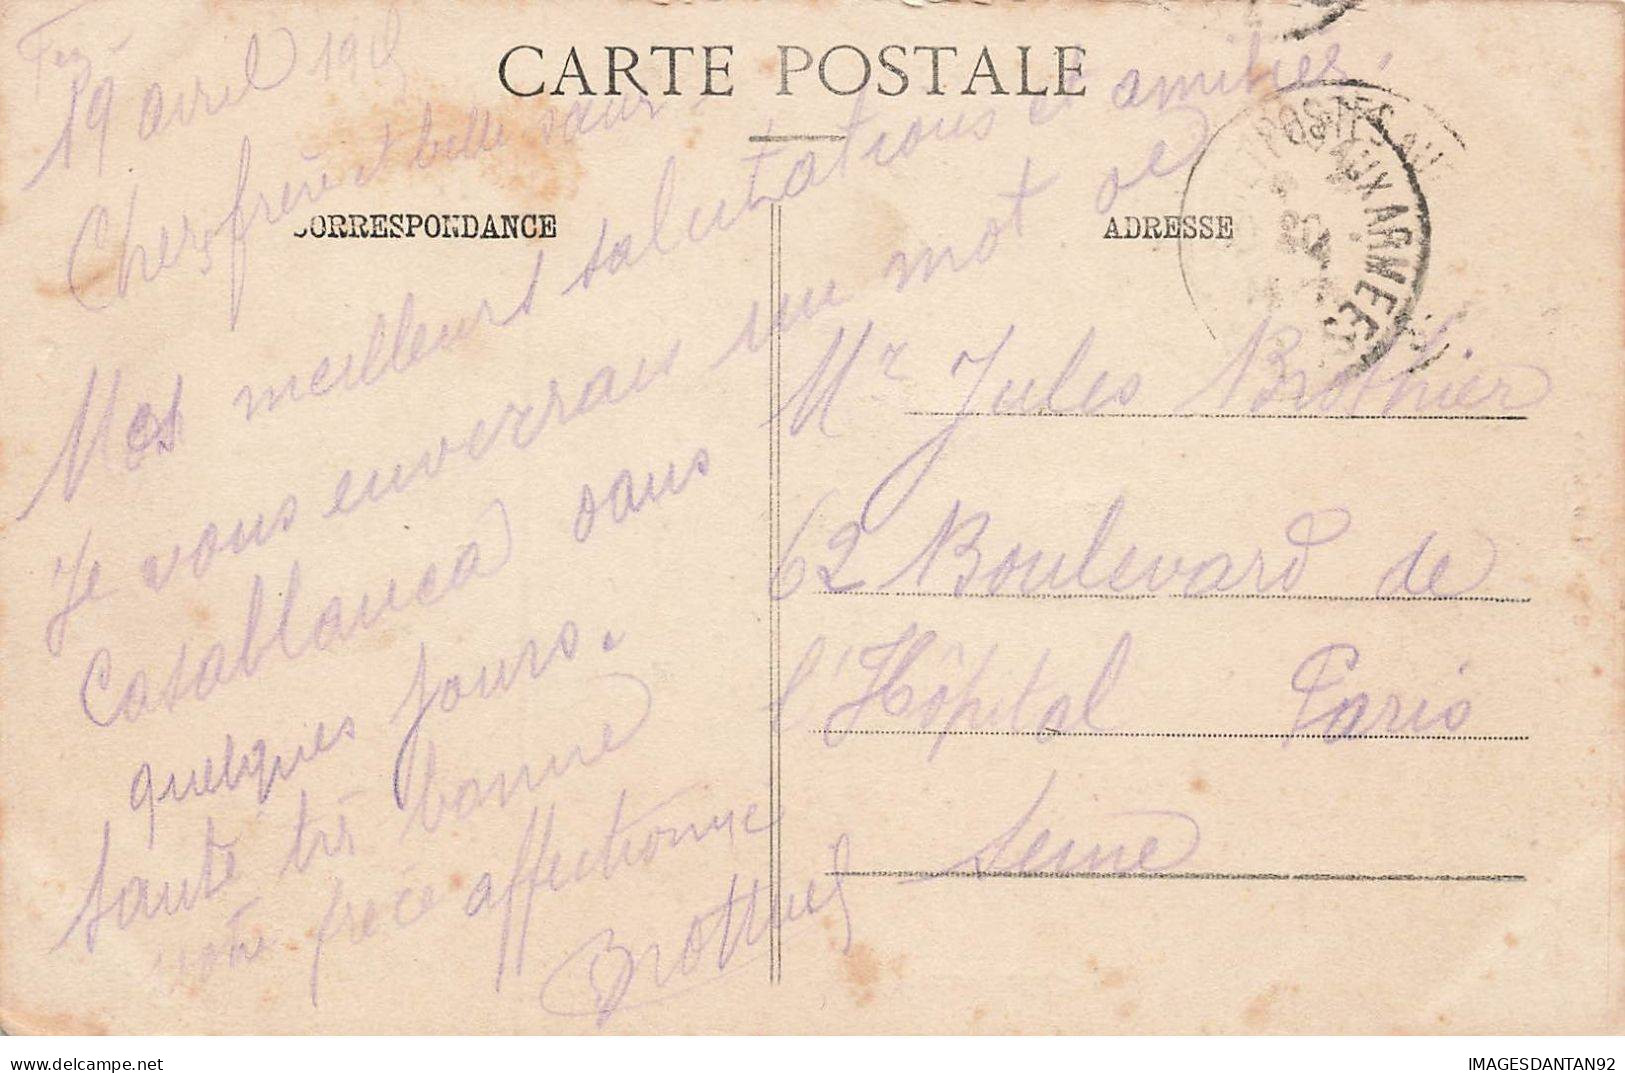 CARTE POSTALE
CORRESPONDANCE
ADRESSE
Fez
19 avril
Chers frère et belle sœur
Mes meilleurs salutations et amitiés.
Je vous enverrais un mot de
Casablanca dans
quelques jours.
Santé très bonne
votre frère affectionné
Brothier
POSTES AUX ARMEES
20
Mr Jules Brothier
62 Boulevard de
l'Hôpital Paris
Seine
delcampe.net
IMAGESDANTAN92